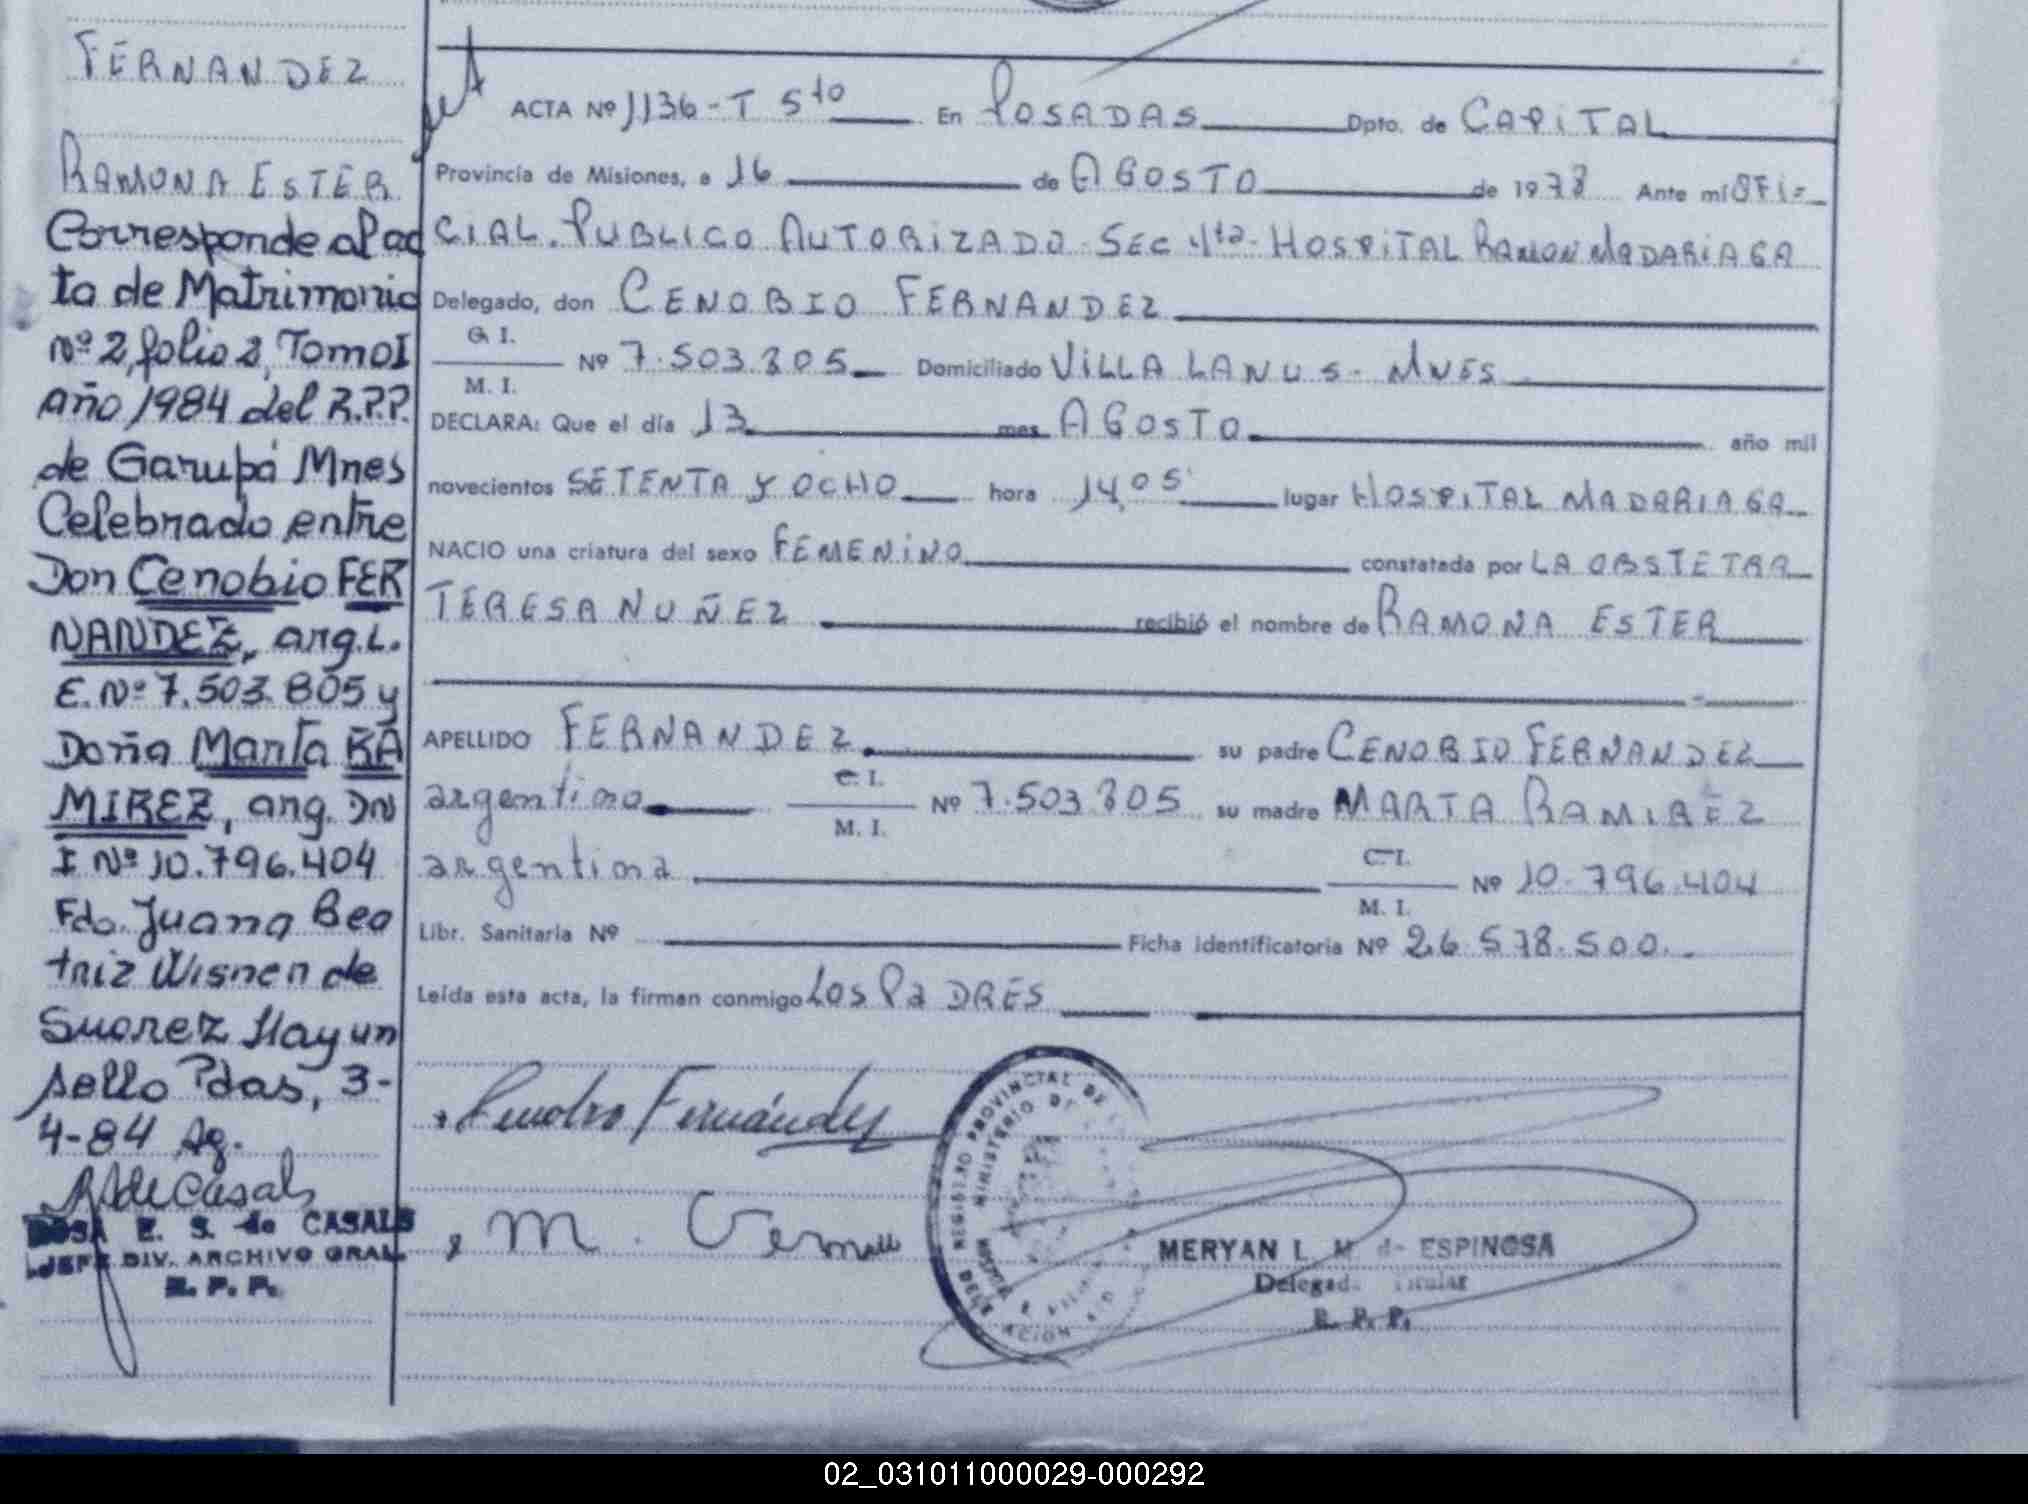 FERNANDEZ
RAMONA ESTER
Corresponde al ac
ta de Matrimonio
Nº 2, folio 2, Tomo I
Año 1984 del R.P.P.
de Garupá Mnes
Celebrado entre
Don Cenobio FER
NANDEZ, arg. L.
E. Nº 7.503.805 y
Doña Marta RA
MIREZ, arg. DN
I Nº 10.796.404
Fdo. Juana Bea
triz Wisner de
Suarez Hay un
sello Pdas, 3-
4-84 Ag.
RSdeCasals
ROSA E. S. de CASALS
JEFE DIV. ARCHIVO GRAL.
R. P. P.
ACTA Nº 1136-T 5to En POSADAS Dpto. de CAPITAL
Provincia de Misiones, a 16 de AGOSTO de 1978 Ante mi OFI=
CIAL. PUBLICO AUTORIZADO SEC 4ta- HOSPITAL RAMON MADARIAGA
Delegado, don CENOBIO FERNANDEZ
C. I.
Nº 7.503.805 Domiciliado VILLA LANUS- MNES
M. I.
DECLARA: Que el día 13 mes AGOSTO año mil
novecientos SETENTA Y OCHO hora 14,05' lugar HOSPITAL MADARIAGA
NACIO una criatura del sexo FEMENINO constatada por LA OBSTETRA
TERESA NUÑEZ recibió el nombre de RAMONA ESTER
APELLIDO FERNANDEZ su padre CENOBIO FERNANDEZ
argentino C. I. Nº 7.503.805 su madre MARTA RAMIREZ
M. I.
argentina C. I. Nº 10.796.404
M. I.
Libr. Sanitaria Nº Ficha identificatoria Nº 26.578.500.
Leída esta acta, la firman conmigo LOS PADRES
Cenobio Fernández
M.
REGISTRO PROVINCIAL DE
MINISTERIO DE
MERYAN I. M. de ESPINOSA
Delegada Titular
R. P. P.
02_031011000029-000292